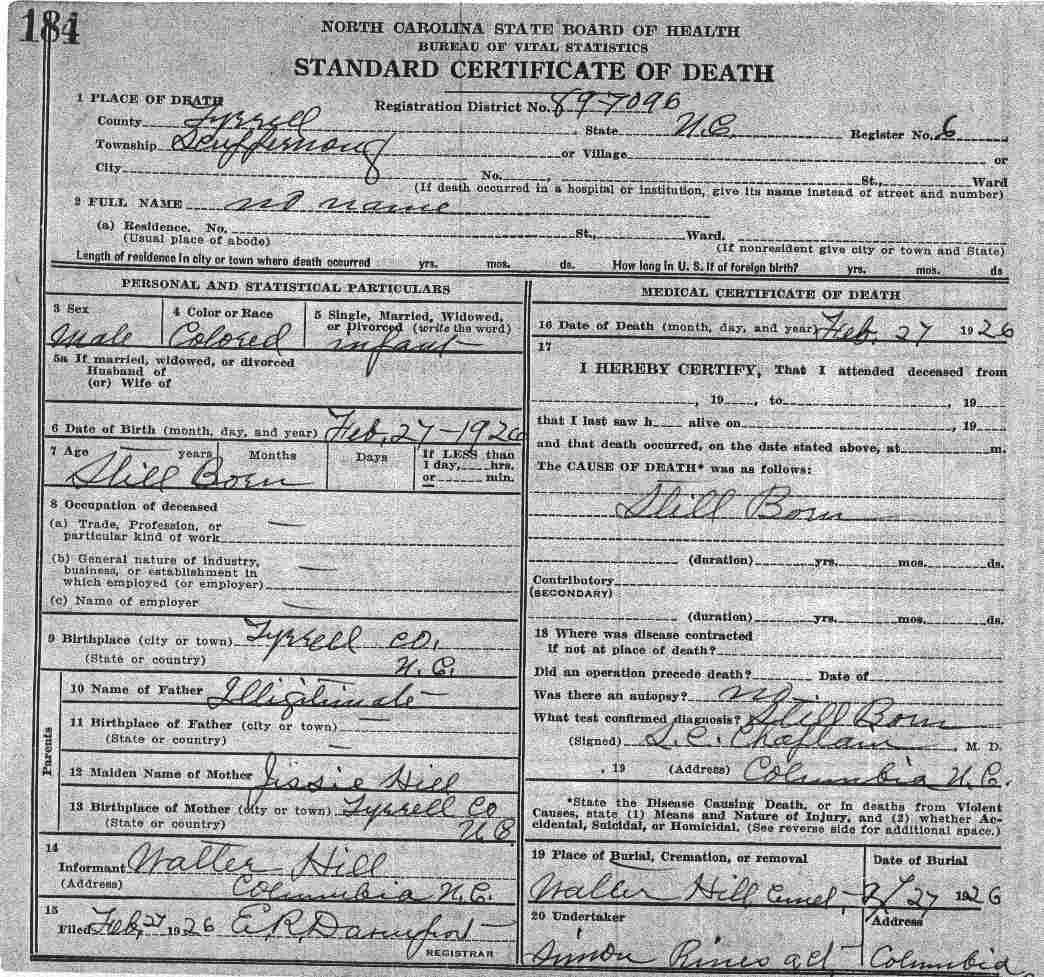 184
NORTH CAROLINA STATE BOARD OF HEALTH
BUREAU OF VITAL STATISTICS
STANDARD CERTIFICATE OF DEATH
1 PLACE OF DEATH Registration District No. 89-7096
County Tyrrell State N.C. Register No. 6
Township Scuppernong or Village or
City No. St., Ward
(If death occurred in a hospital or institution, give its name instead of street and number)
2 FULL NAME no name
(a) Residence. No. St., Ward.
(Usual place of abode) (If nonresident give city or town and State)
Length of residence in city or town where death occurred yrs. mos. ds. How long in U. S. if of foreign birth? yrs. mos. ds
PERSONAL AND STATISTICAL PARTICULARS
3 Sex 4 Color or Race 5 Single, Married, Widowed,
or Divorced (write the word)
Male Colored infant
5a If married, widowed, or divorced
Husband of
(or) Wife of
6 Date of Birth (month, day, and year) Feb. 27-1926
7 Age years Months Days If LESS than
1 day, hrs.
or min.
Still Born
8 Occupation of deceased
(a) Trade, Profession, or
particular kind of work
(b) General nature of industry,
business, or establishment in
which employed (or employer)
(c) Name of employer
9 Birthplace (city or town) Tyrrell Co.
(State or country) N.C.
Parents
10 Name of Father Illigitimate
11 Birthplace of Father (city or town)
(State or country)
12 Maiden Name of Mother Jissie Hill
13 Birthplace of Mother (city or town) Tyrrell Co
(State or country) N.C.
14
Informant Walter Hill
(Address) Columbia N.C.
15
Filed Feb, 27 1926 E.R. Davenport
REGISTRAR
MEDICAL CERTIFICATE OF DEATH
16 Date of Death (month, day, and year) Feb. 27 1926
17
I HEREBY CERTIFY, That I attended deceased from
, 19 , to , 19
that I last saw h alive on , 19
and that death occurred, on the date stated above, at m.
The CAUSE OF DEATH* was as follows:
Still Born
(duration) yrs. mos. ds.
Contributory
(SECONDARY)
(duration) yrs. mos. ds.
18 Where was disease contracted
if not at place of death?
Did an operation precede death? Date of
Was there an autopsy? no
What test confirmed diagnosis? Still Born
(Signed) , M. D.
, 19 (Address) Columbia N.C.
*State the Disease Causing Death, or in deaths from Violent
Causes, state (1) Means and Nature of Injury, and (2) whether Ac-
cidental, Suicidal, or Homicidal. (See reverse side for additional space.)
19 Place of Burial, Cremation, or removal Date of Burial
Walter Hill Cemet, 2/27 1926
20 Undertaker Address
Simon Columbia